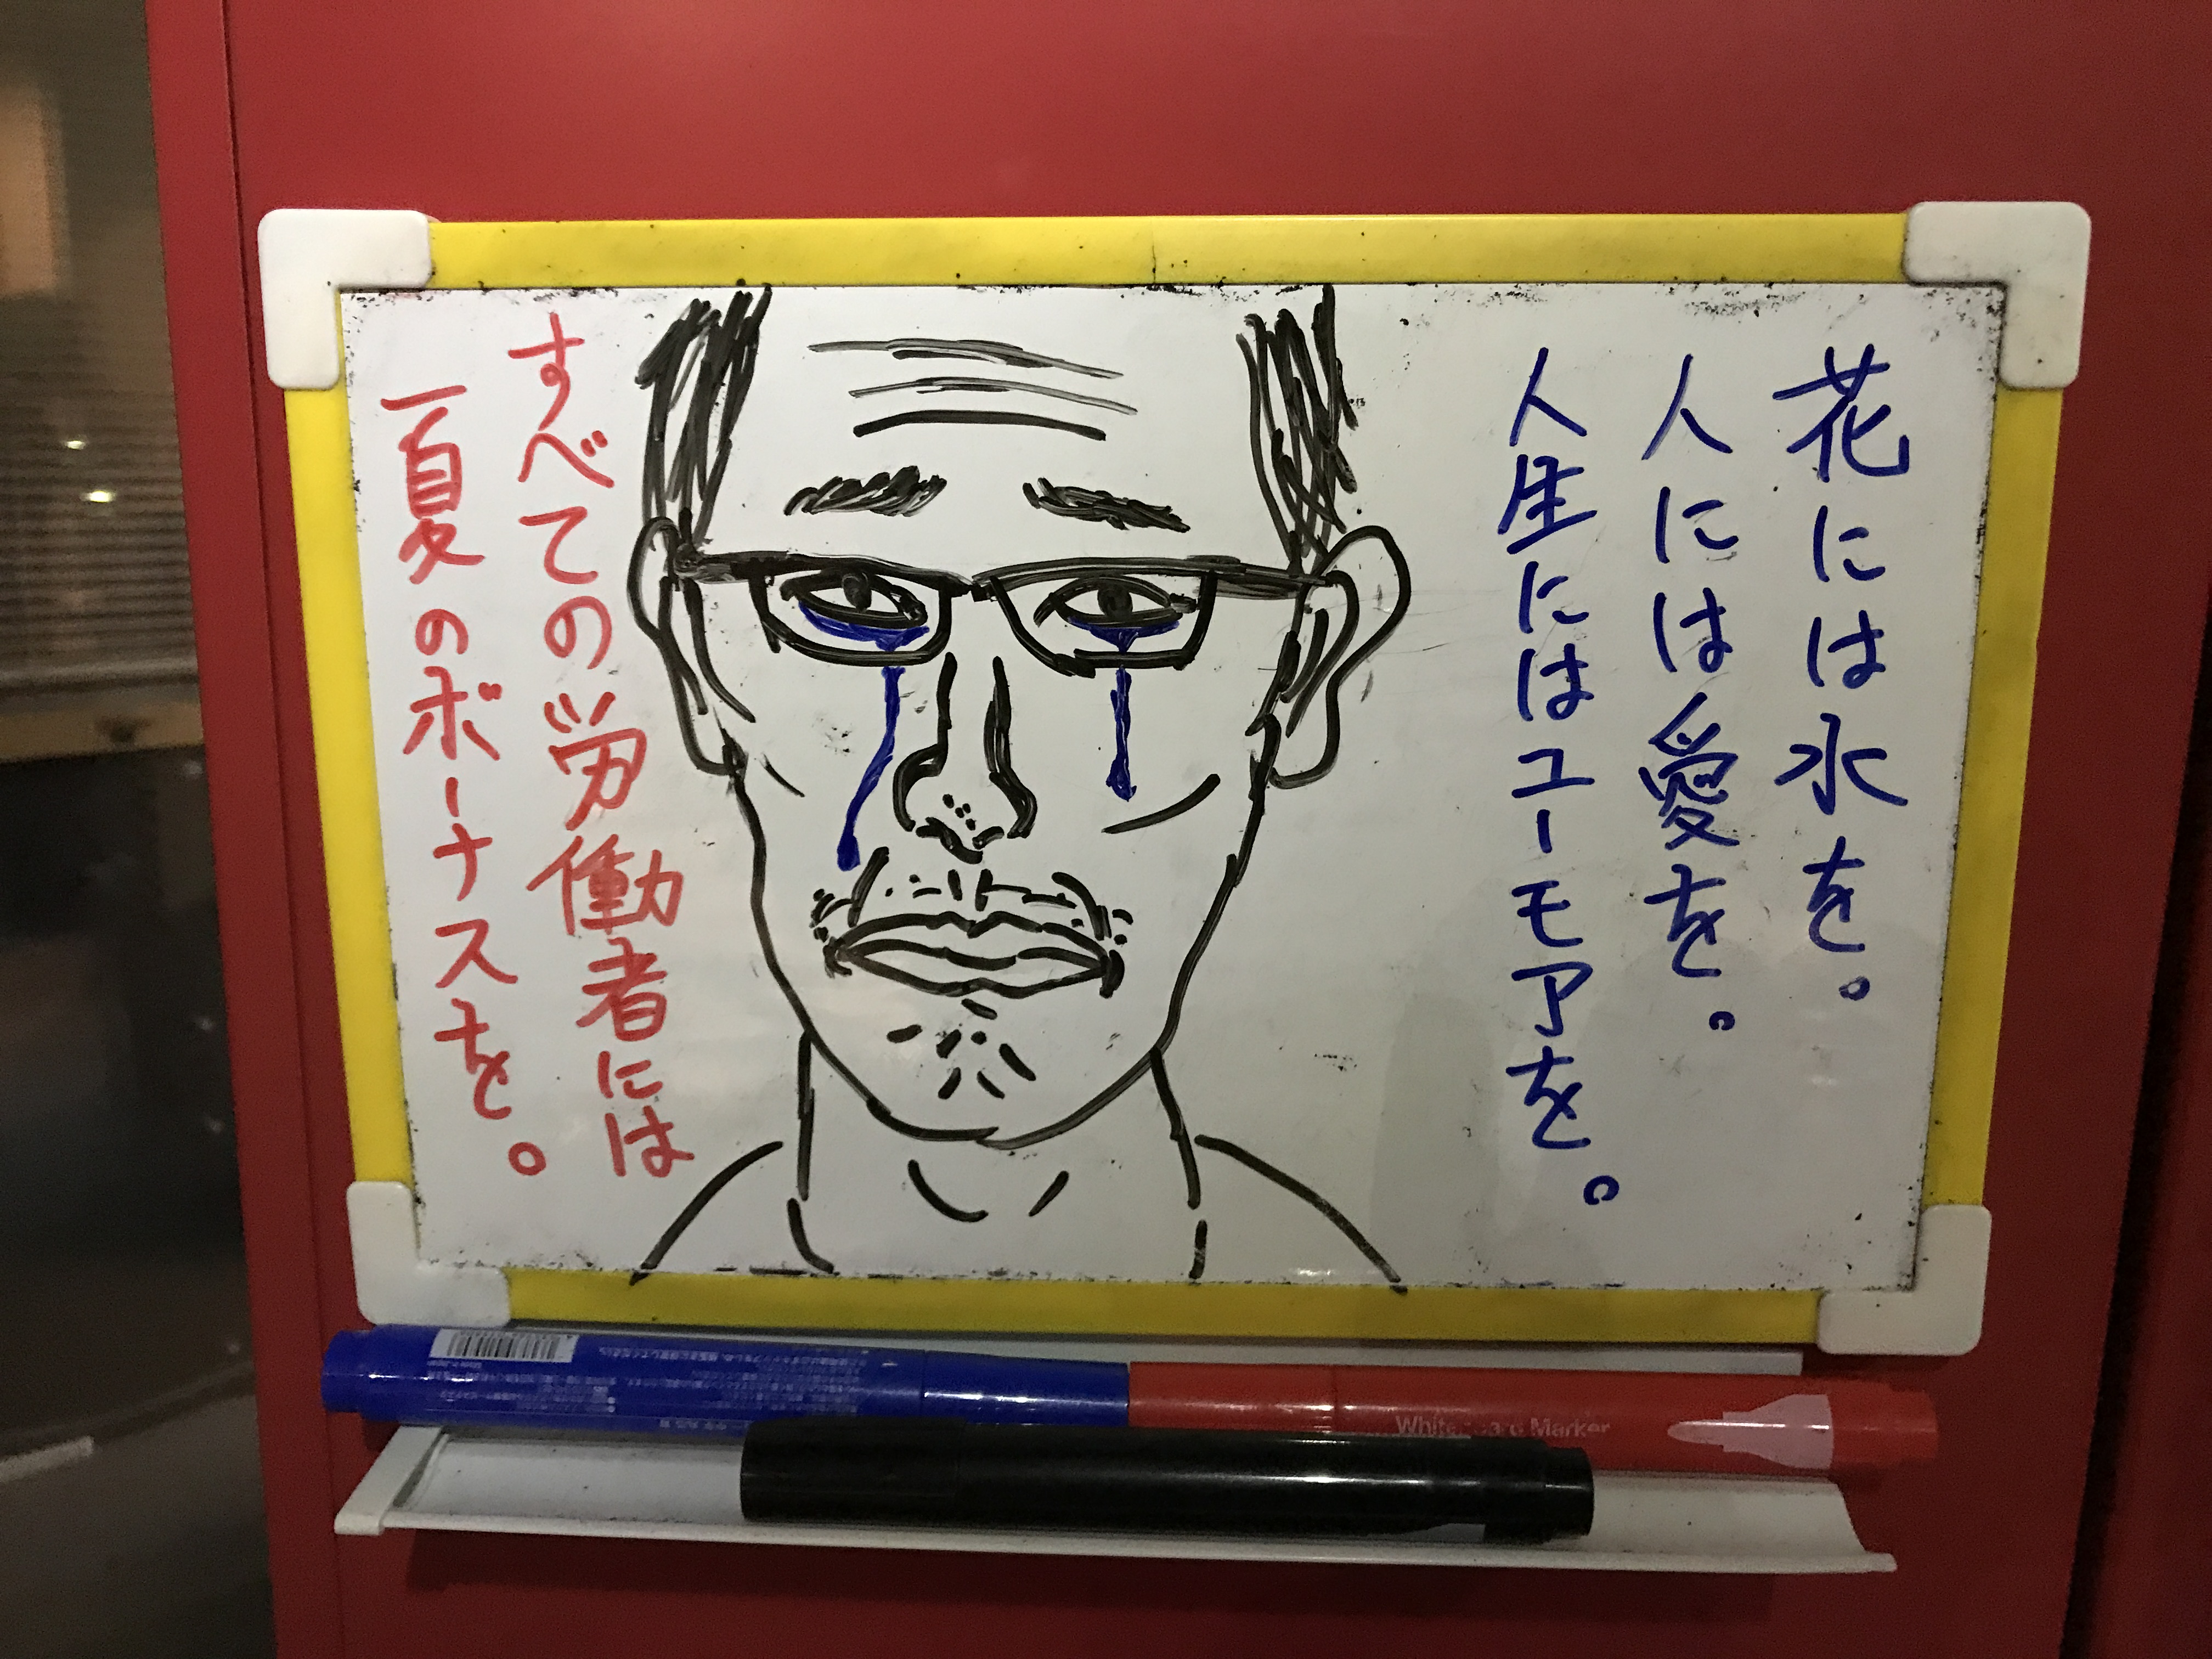 花には水を。
人には愛を。
人生にはユーモアを。
すべての労働者には
夏のボーナスを。
Whiteboard Marker